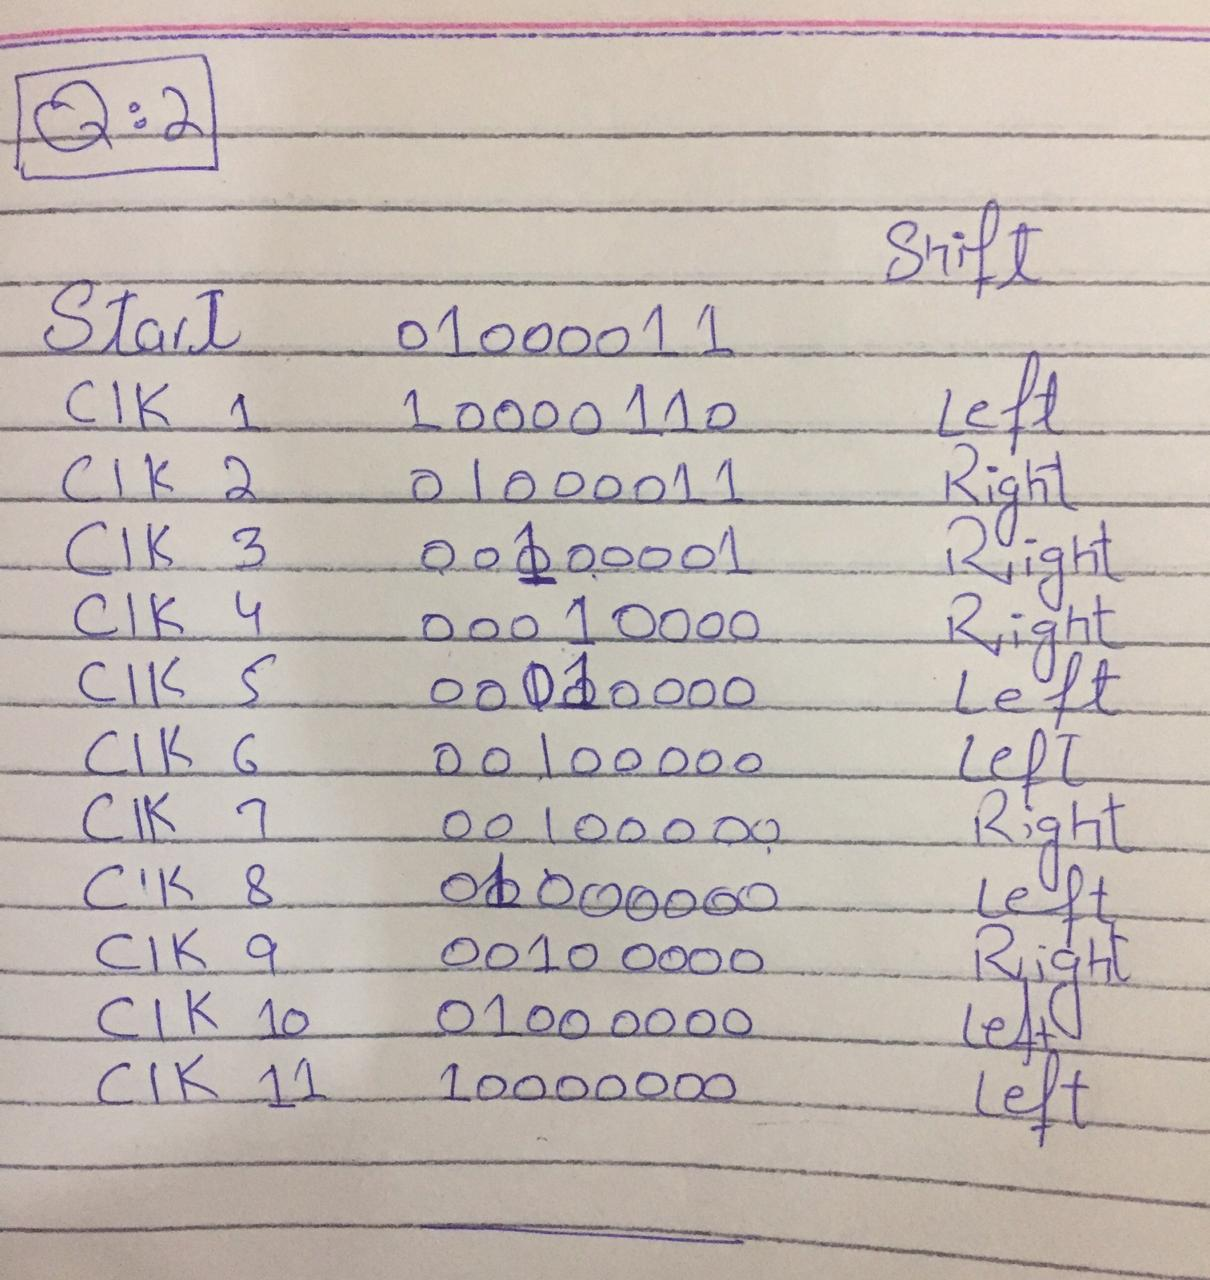 Q:2
Shift
Start 01000011
ClK 1 10000110 Left
ClK 2 01000011 Right
ClK 3 00100001 Right
ClK 4 00010000 Right
ClK 5 00010000 Left
ClK 6 00100000 Left
ClK 7 00100000 Right
ClK 8 01000000 Left
ClK 9 00100000 Right
ClK 10 01000000 Left
ClK 11 10000000 Left